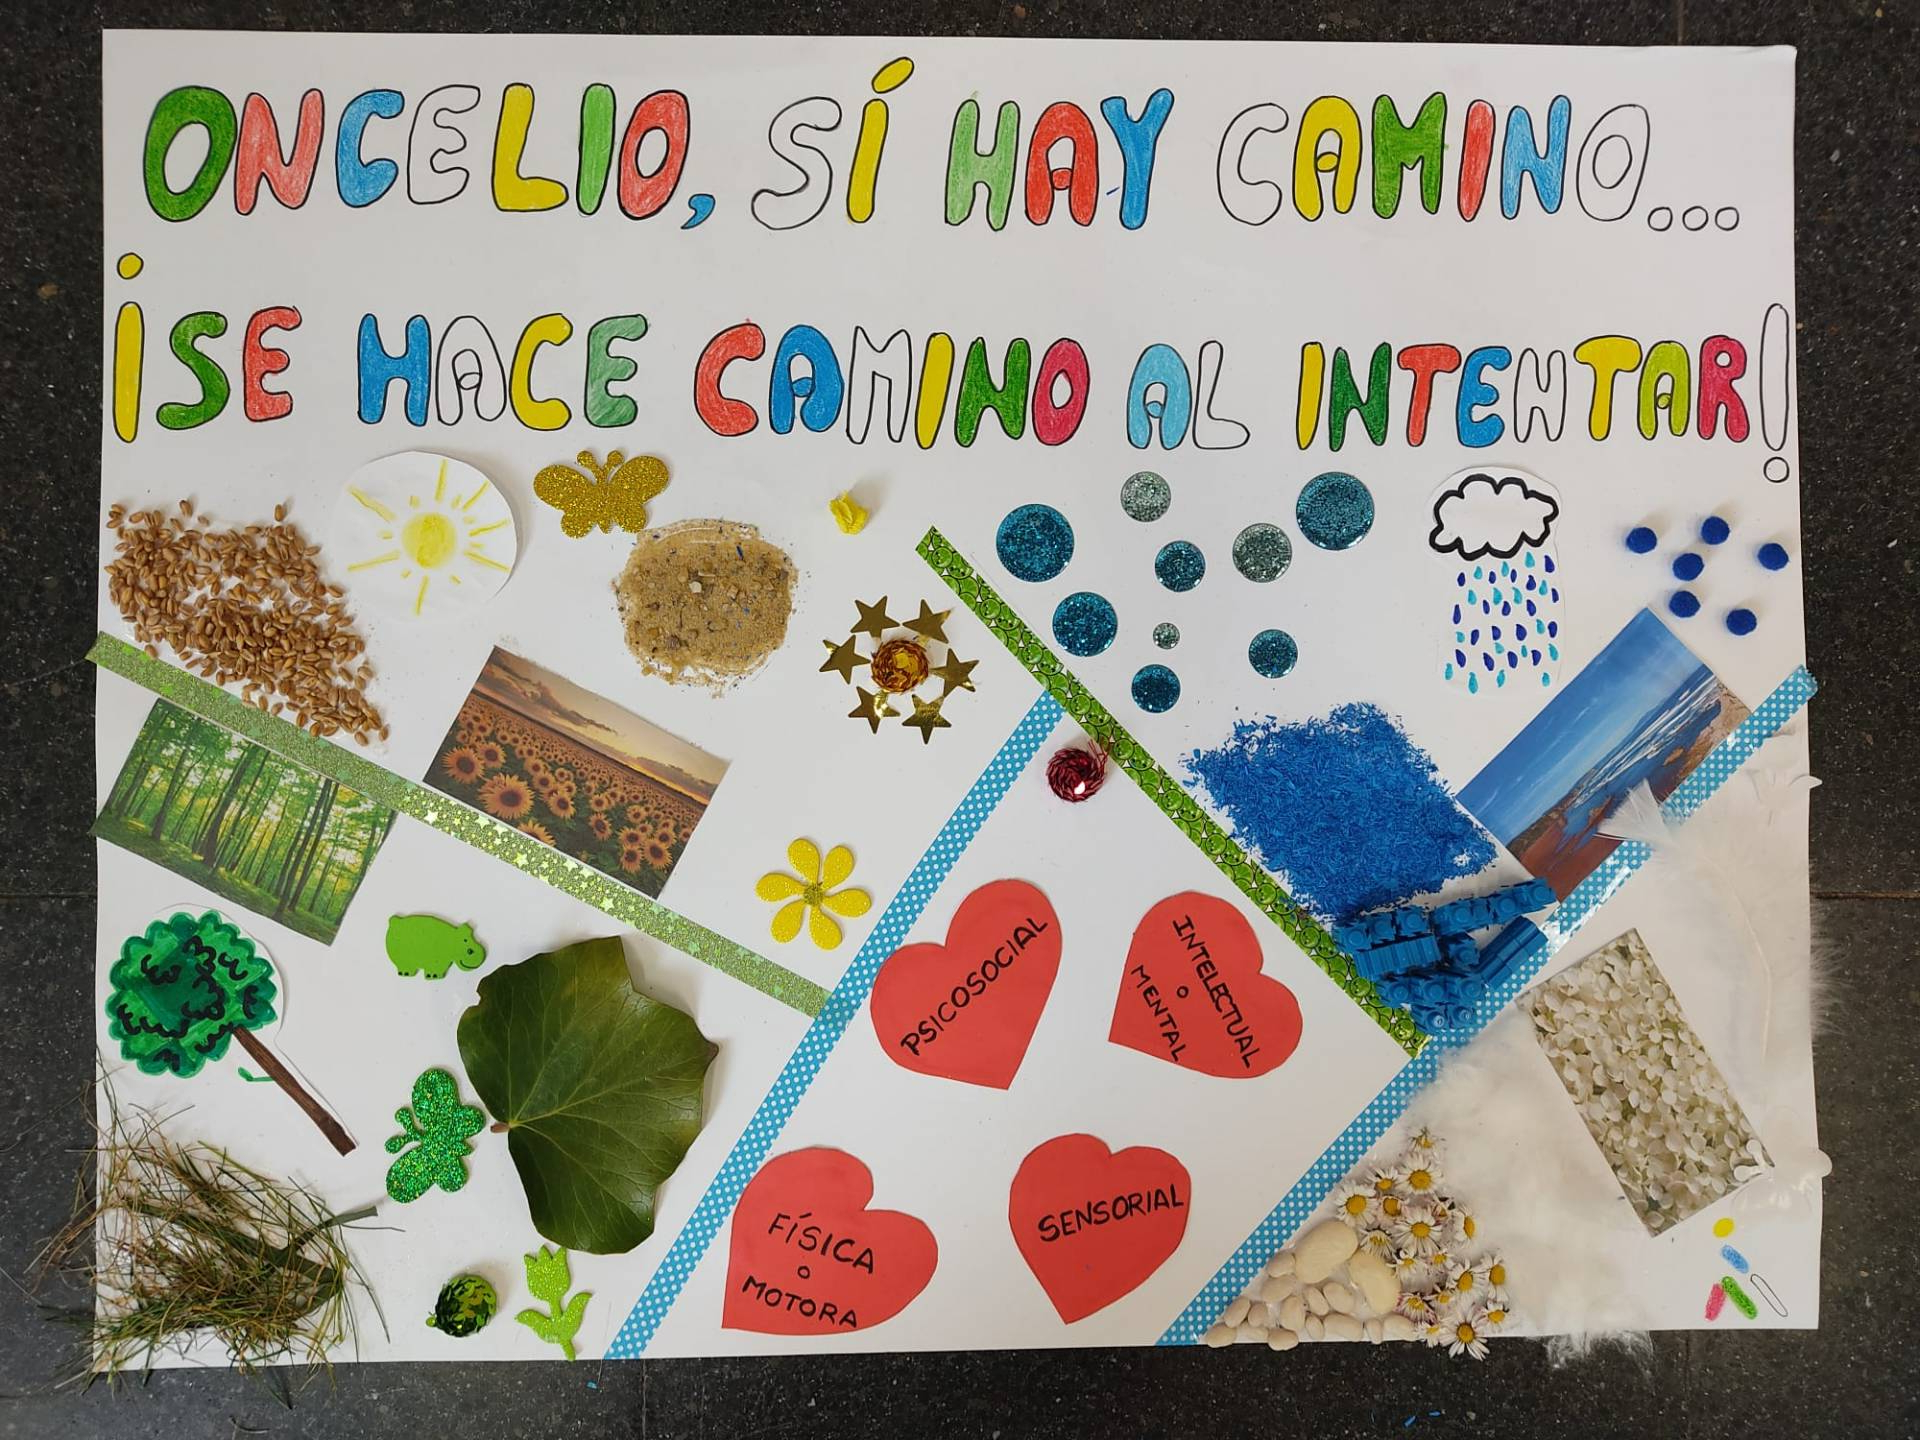 ONCELIO, SÍ HAY CAMINO...
¡SE HACE CAMINO AL INTENTAR!
PSICOSOCIAL
INTELECTUAL
O
MENTAL
FÍSICA
O
MOTORA
SENSORIAL